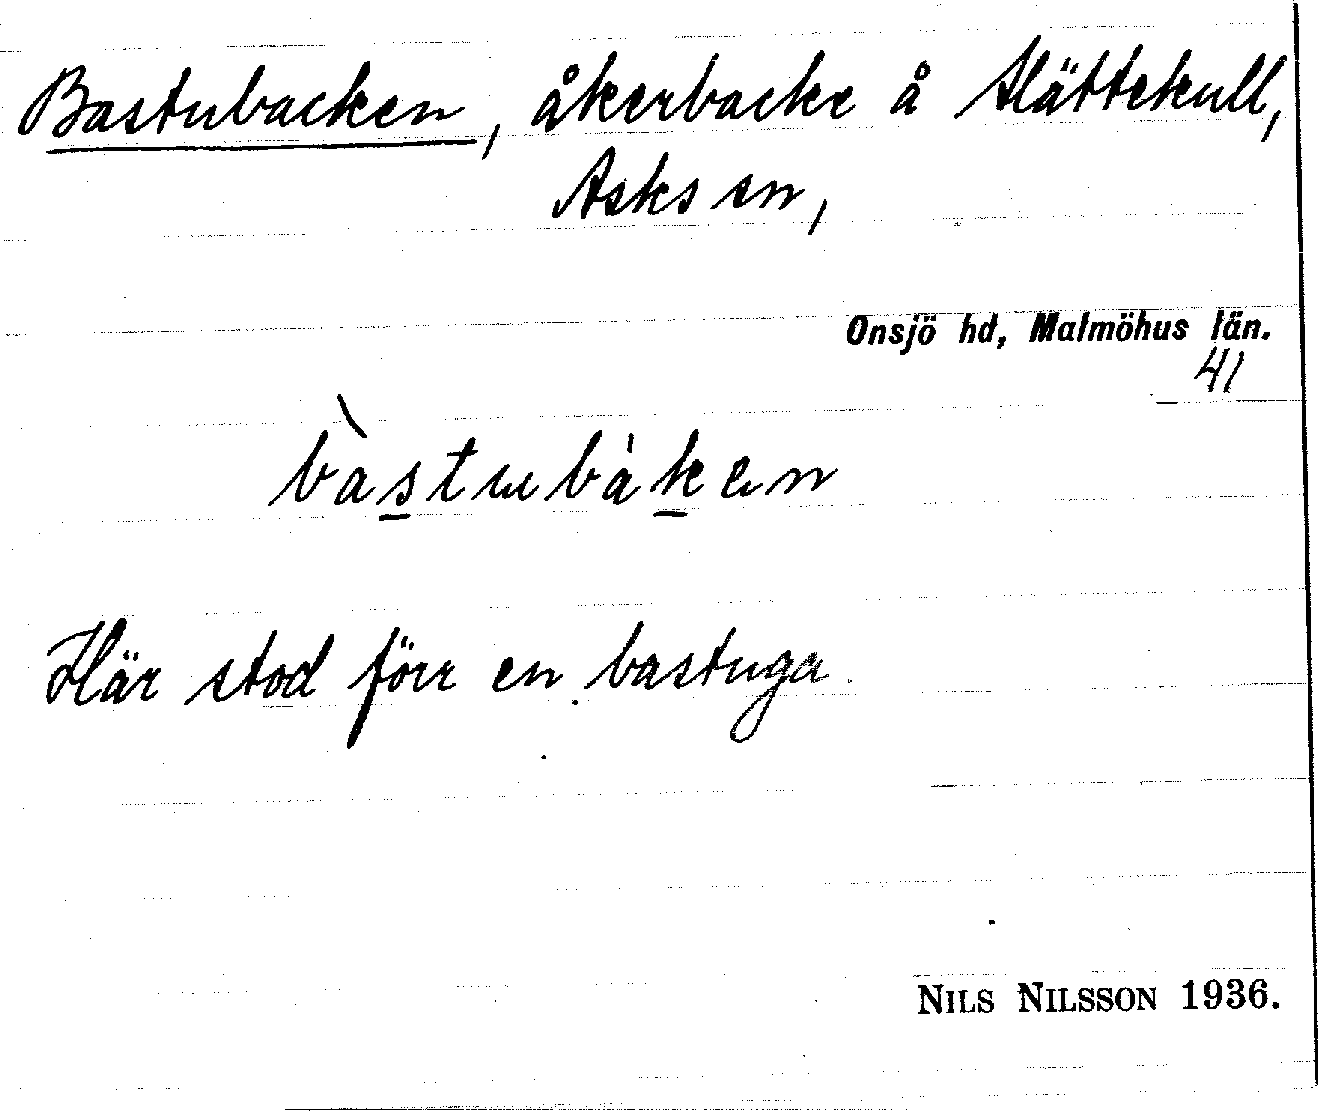 Bastubacken, åkerbacke å Hättekull,
Asks sn,
Onsjö hd, Malmöhus län.
41
bàstubàken
Här stod förr en bastuga.
NILS NILSSON 1936.